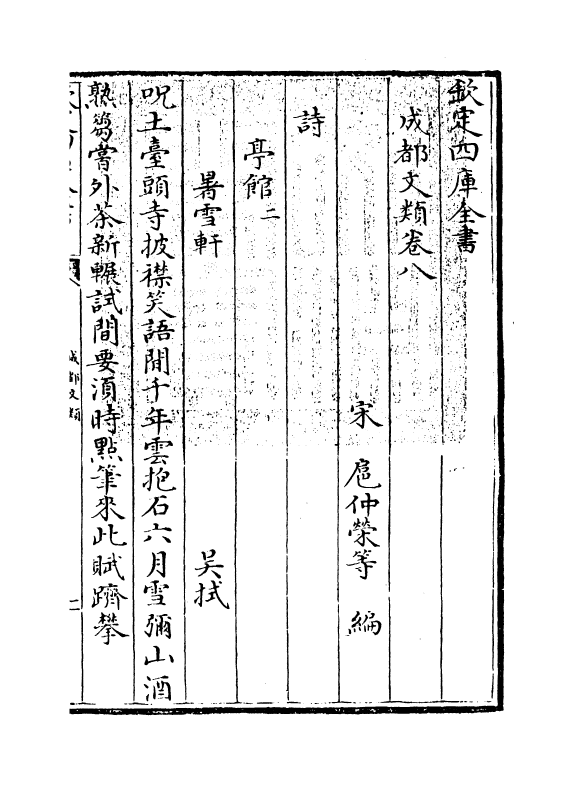 欽定四庫全書
成都文類卷八
宋 扈仲榮等 編
詩
亭館二
暑雪軒 吴拭
呪土臺頭寺披襟笑語閒千年雲抱石六月雪彌山酒
熟芻嘗外茶新輾試間要湏時點筆來此賦躋攀
成都文類